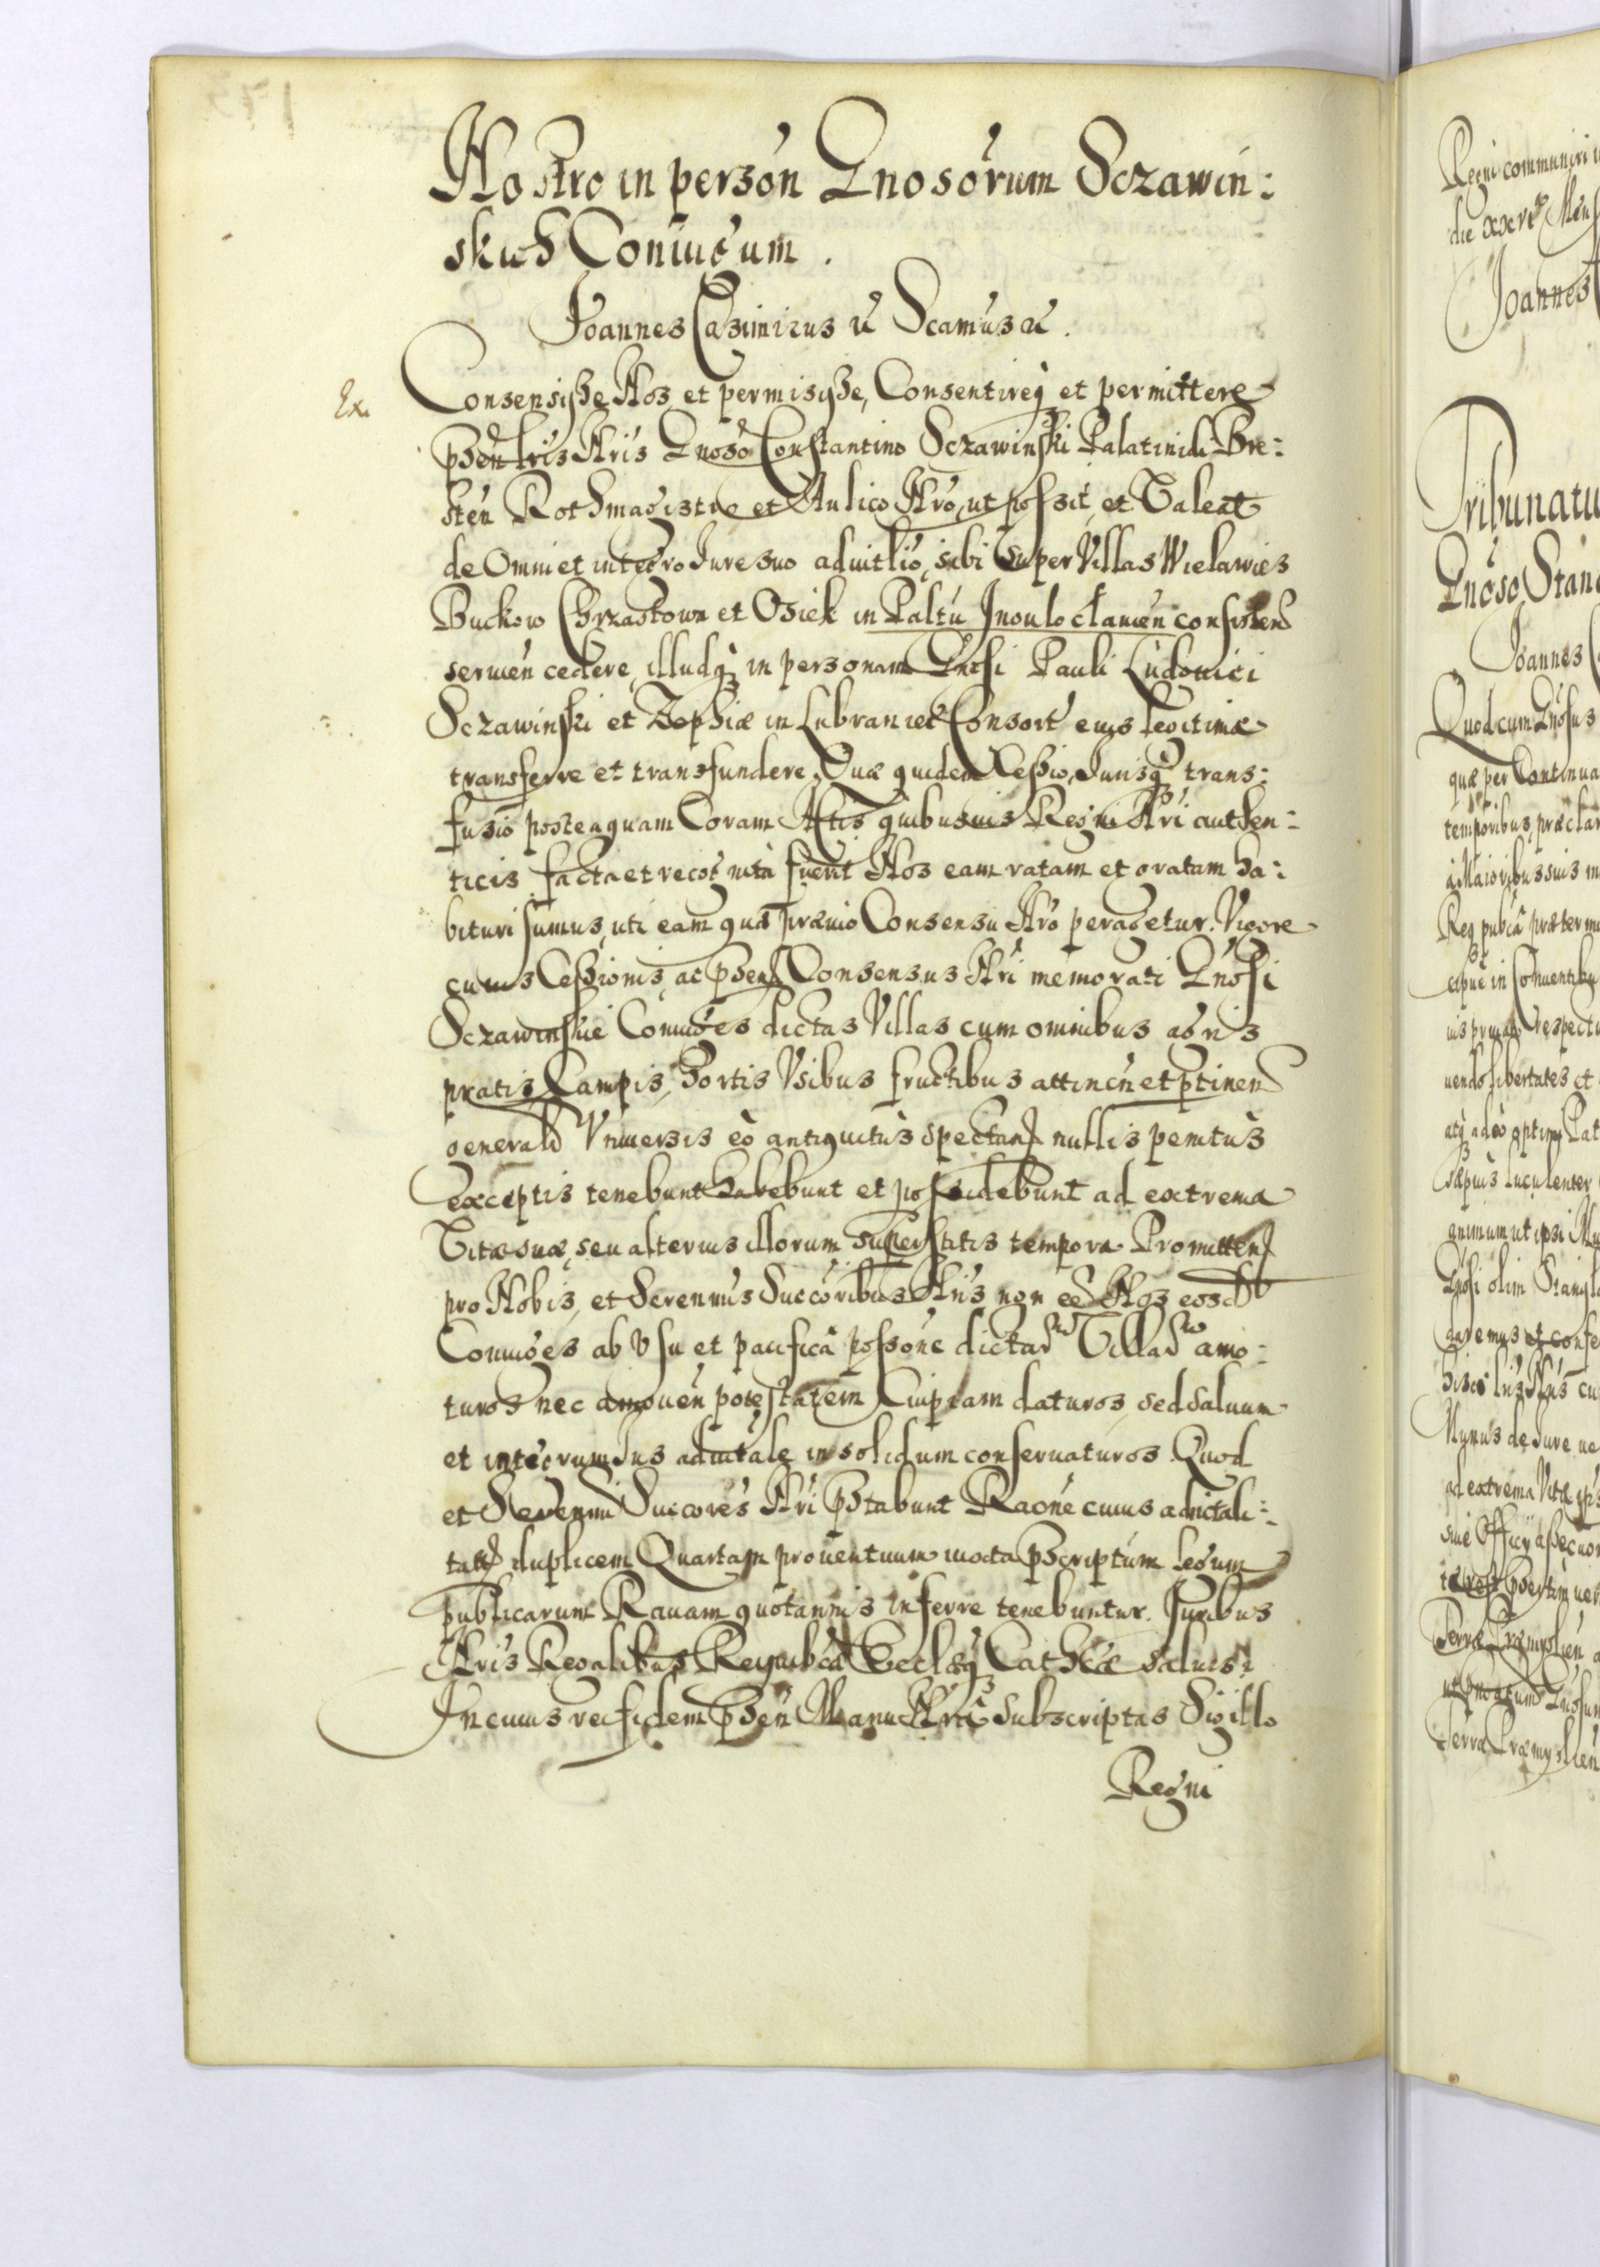 Nostro in person Gnosorum Sczawin:
skich Coniugum.
Joannes Casimirus &c Scamus &c.
Ex.
Consensisse Nos et permisisse, Consentireq et permittere
psen lris Nris Gnoso Constantino Sczawinski Palatinidi Bre:
sten Rothmagistro et Aulico Nro, ut possit, et Valeat
de Omni et integro Jure suo aduitlio, sibi super Villas Wielawies
Buckow Chrzastowo et Osiek in Paltu Inoulocłauien consisten
seruien cedere, illudq in personam Gnosi Pauli Ludouici
Sczawinski et Zophiæ in Lubraniec Consort eius legitimæ
transferre et transfundere, Quæ quidem Cessio, Jurisq trans:
fusio posteaquam Coram Actis quibusuis Regni Nri authen:
ticis facta et recognita fuerit Nos eam ratam et gratam ha:
bituri sumus, uti eam quæ præuio Consensu Nro peragetur. Vigore
cuius Cessionis, ac psen Consensus Nri memorati Gnosi
Sczawinskie Coniuges dictas Villas cum omnibus agris
pratis Campis, Hortis Vsibus fructibus attinen et ptinen
generalr Vniuersis eò antiquitùs spectan nullis penitùs
exceptis tenebunt habebunt et possidebunt ad extrema
Vitæ suæ, seu alterius illorum superstitis tempora Promitten
pro Nobis, et Serenmis Succoribus Nris non ee Nos eosd
Coniuges ab Vsu et pacificâ possone dictar Villar amo:
turos nec amouen potestatem Cuipiam daturos, sed saluum
et integrum Jus aduitale in solidum conseruaturos. Quod
et Serenmi Succores Nri pstabunt Raone cuius aduitali:
tatis duplicem Quartam prouentuum iuxta pscriptum legum
publicarum Rauam quotannis inferre tenebuntur. Juribus
Nris Regalibus Reipublcæ Ecclæq Catholcæ saluis.
In cuius rei fidem psen Manu Nra Subscriptas Sigillo
Regni